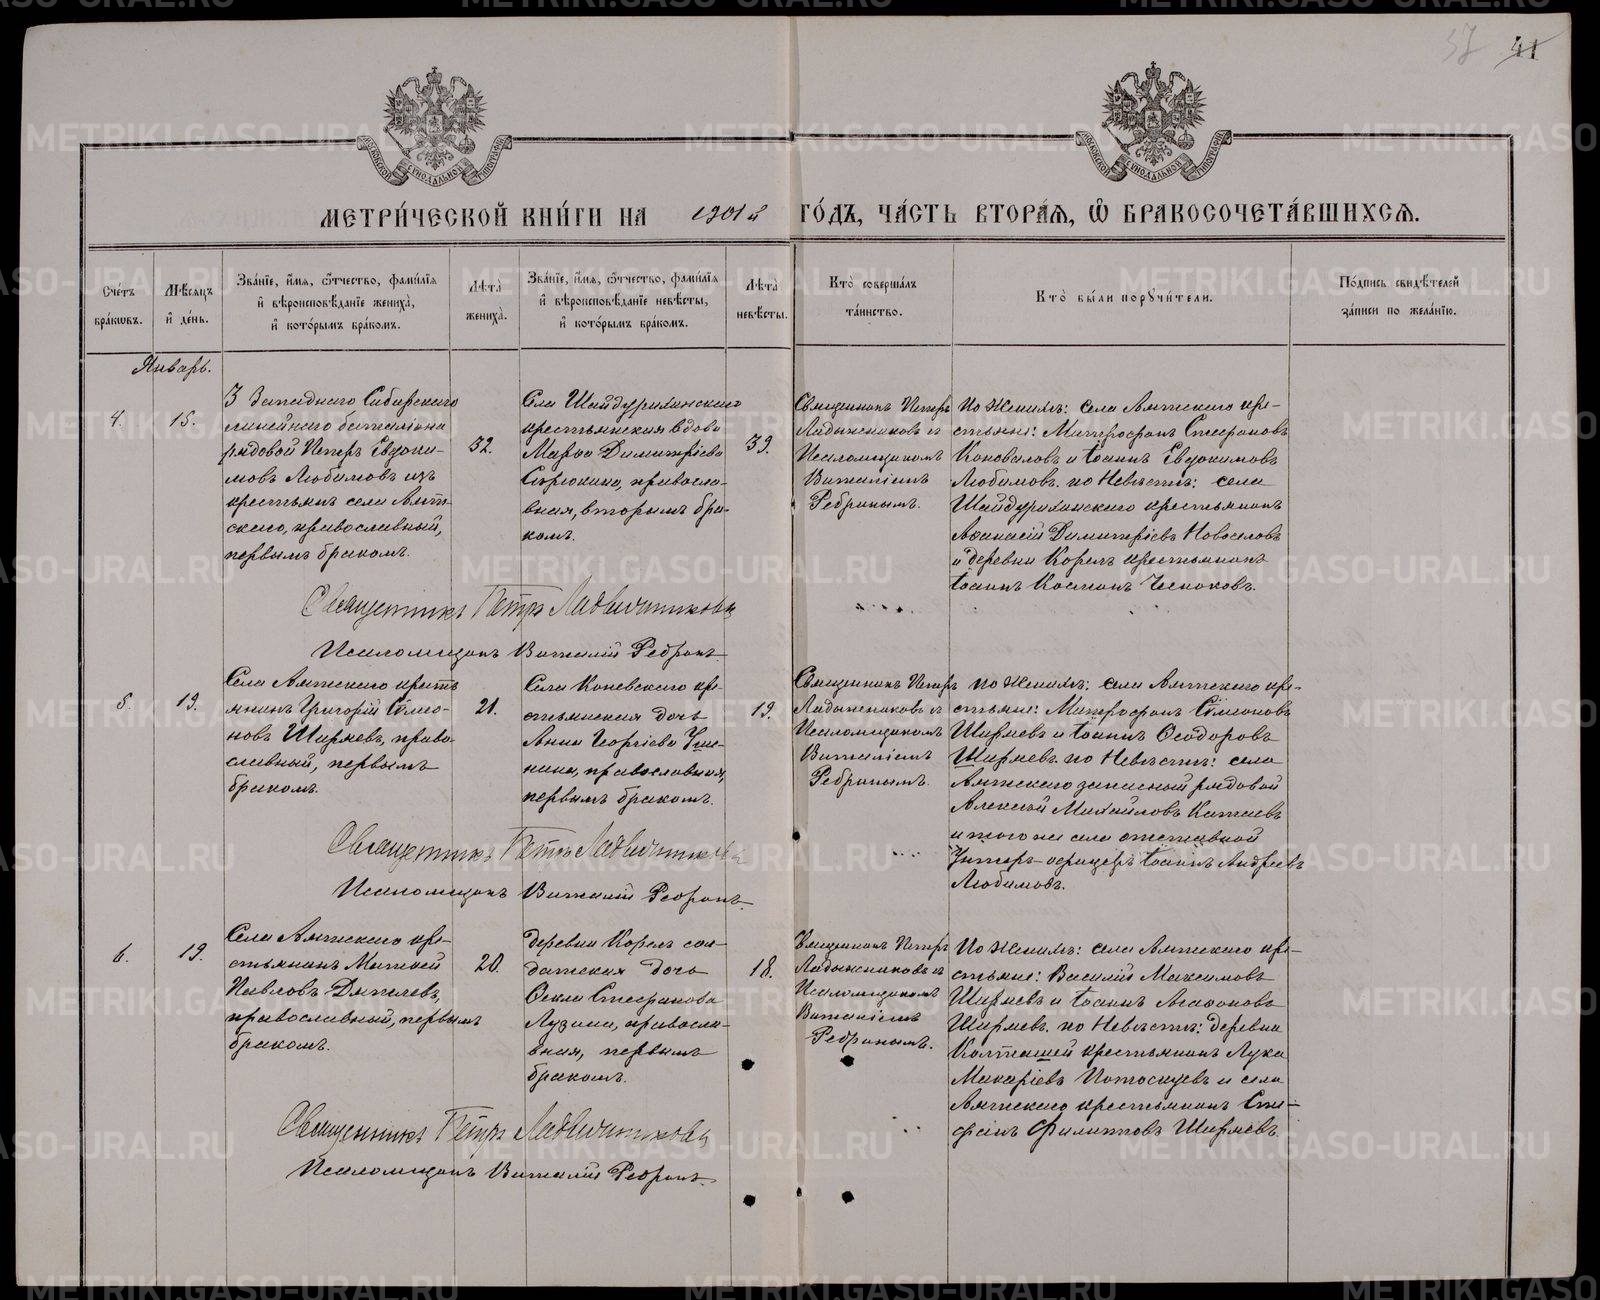 37 41
МЕТРИ́ЧЕСКОЙ КНИ́ГИ НА 1901й ГО́ДЪ, ЧА́СТЬ ВТОРА́Я, Ѡ БРАКОСОЧЕТА́ВШИХСЯ.
Сче́тъ
бра́кѡвъ.
Мѣ́сяцъ
и҆ де́нь.
Зва́нїе, и҆́мѧ, ѻ҆́тчество, фами́лїѧ
и҆ вѣроисповѣ́данїе жениха̀,
и҆ кото́рымъ бра́комъ.
Лѣ́та
жениха̀.
Зва́нїе, и҆́мѧ, ѻ҆́тчество, фами́лїѧ
и҆ вѣроисповѣ́данїе невѣ́сты,
и҆ кото́рымъ бра́комъ.
Лѣ́та
невѣ́сты.
Кто̀ соверша́лъ
та́инство.
Кто̀ бы́ли порꙋчи́тели.
По́дпись свидѣ́телей
за́писи по жела́нїю.
Январь.
4.
15.
3 Западнаго Сибирскаго
линейнаго баталіона
рядовой Петръ Евдоки-
мовъ Любимовъ изъ
крестьянъ села Аят-
скаго, православный,
первымъ бракомъ.
32.
Села Шайдурихинскаго
крестьянская вдова
Марѳа Димитріева
православ-
ная, вторымъ бра-
комъ.
39.
Священникъ Петръ
Ладыжниковъ съ
Псаломщикомъ
Виталіемъ
Ребринымъ.
По Женихѣ: села Аятскаго кре-
стьяне: Митрофанъ Стефановъ
Коноваловъ и Іоаннъ Евдокимовъ
Любимовъ. по Невѣстѣ: села
Шайдурихинскаго крестьянинъ
Аѳанасій Димитріевъ Новоселовъ
и деревни Корелъ крестьянинъ
Іоаннъ Косминъ Чесноковъ.
Священникъ Петръ Ладыжниковъ
Псаломщикъ Виталій Ребринъ
5.
19.
Села Аятскаго кресть-
янинъ Григорій Сѵмео-
новъ Ширяевъ, право-
славный, первымъ
бракомъ.
21.
Села Коневскаго кре-
стьянская дочь
Анна Георгіева
православная,
первымъ бракомъ.
19.
Священникъ Петръ
Ладыжниковъ съ
Псаломщикомъ
Виталіемъ
Ребринымъ.
по Женихѣ: села Аятскаго кре-
стьяне: Митрофанъ Сѵмеоновъ
Ширяевъ и Іоаннъ Ѳеодоровъ
Ширяевъ. по Невѣстѣ: села
Аятскаго запасный рядовой
Алексѣй Михайловъ Катаевъ
и того же села отставной
Унтеръ-офицеръ Іоаннъ Андреевъ
Любимовъ.
Священникъ Петръ Ладыжниковъ
Псаломщикъ Виталій Ребринъ.
6.
19.
Села Аятскаго кре-
стьянинъ Матвей
Павловъ Дягилевъ,
православный, первымъ
бракомъ.
20.
деревни Корелъ сол-
датская дочь
Ѳекла Стефанова
Лузина, православ-
ная, первымъ
бракомъ.
18.
Священникъ Петръ
Ладыжниковъ съ
Псаломщикомъ
Виталіемъ
Ребринымъ.
По Женихѣ: села Аятскаго кре-
стьяне: Василій Максимовъ
Ширяевъ и Іоаннъ Агафоновъ
Ширяевъ. по Невѣстѣ: деревни
Колташей крестьянинъ Лука
Макаріевъ Потоскуевъ и села
Аятскаго крестьянинъ Сте-
фанъ Филипповъ Ширяевъ.
Священникъ Петръ Ладыжниковъ
Псаломщикъ Виталій Ребринъ.
METRIKI.GASO-URAL.RU